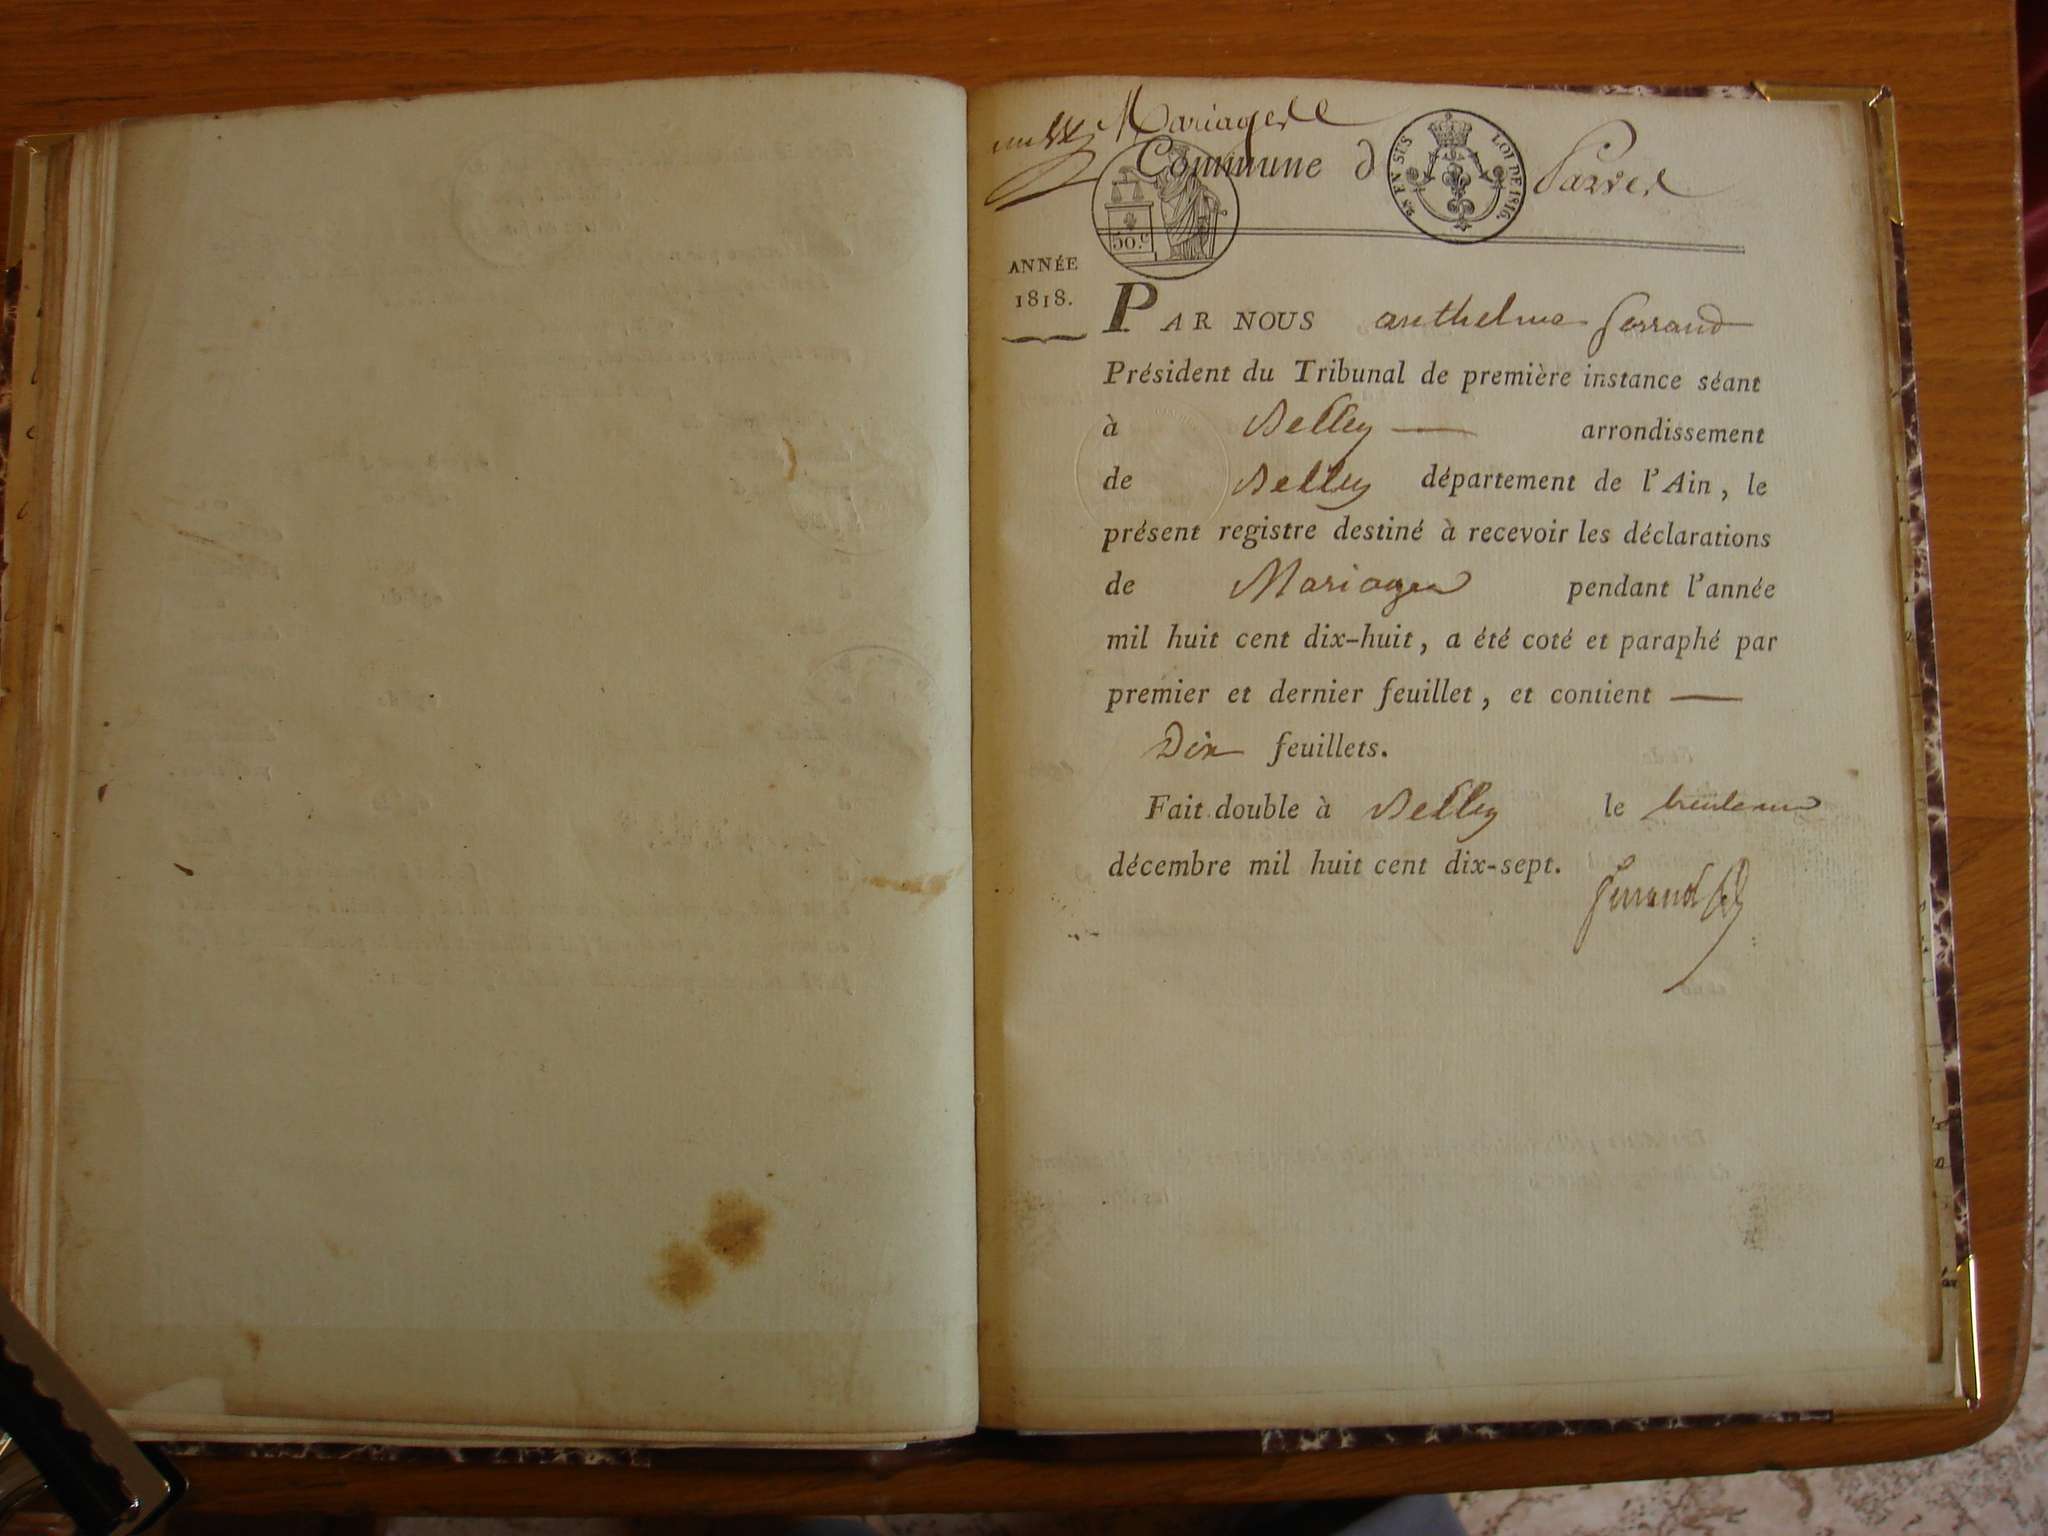 Mariages
Commune d Parves
50.c
28 EN SUS LOI DE 1816.
ANNÉE
1818.
PAR NOUS anthelme ferrand
Président du Tribunal de première instance séant
à Belley — arrondissement
de Belley département de l'Ain, le
présent registre destiné à recevoir les déclarations
de Mariages pendant l'année
mil huit cent dix-huit, a été coté et paraphé par
premier et dernier feuillet, et contient —
Dix feuillets.
Fait double à Belley le trente un
décembre mil huit cent dix-sept.
ferrand